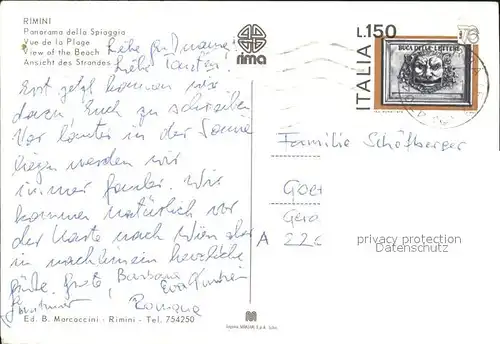 RIMINI
Panorama della Spiaggia
Vue de la Plage
View of the Beach
Ansicht des Strandes
rima
L.150
ITALIA
BUCA DELLE LETTERE
Liebe
Liebe Tanten!
Erst jetzt kommen wir
dazu Euch zu schreiben
Vor lauter in der Sonne
liegen werden wir
immer fauler. Wir
kommen natürlich vor
der Karte nach Wien aber
im nachhinein herzliche
Grüße. Grete, Barbara
Romana
Familie Schöfberger
A
privacy protection
Datenschutz
Ed. B. Marcaccini - Rimini - Tel. 754250